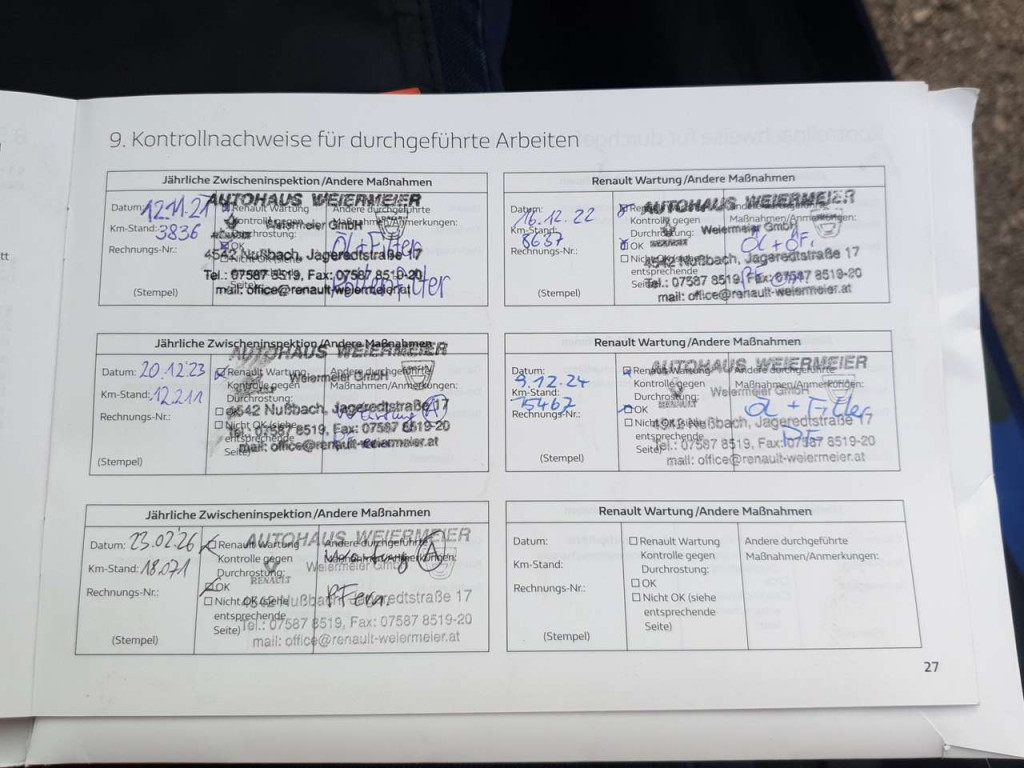 9. Kontrollnachweise für durchgeführte Arbeiten
Jährliche Zwischeninspektion/Andere Maßnahmen
Datum: 12.11.21
Km-Stand: 3836
Rechnungs-Nr.:
(Stempel)
Renault Wartung
Kontrolle gegen
Durchrostung:
OK
Nicht OK (siehe
Seite)
Andere durchgeführte
Maßnahmen/Anmerkungen:
Öl + Filter
Pollenfilter
AUTOHAUS WEIERMEIER
Weiermeier GmbH
RENAULT
4542 Nußbach, Jageredtstraße 17
Tel.: 07587 8519, Fax: 07587 8519-20
mail: office@renault-weiermeier.at
Renault Wartung/Andere Maßnahmen
Datum: 16.12.22
Km-Stand: 8637
Rechnungs-Nr.:
(Stempel)
Renault Wartung
Kontrolle gegen
Durchrostung:
OK
Nicht OK (siehe
entsprechende
Seite)
Andere durchgeführte
Maßnahmen/Anmerkungen:
Öl + ÖF.
AUTOHAUS WEIERMEIER
Weiermeier GmbH
RENAULT
4542 Nußbach, Jageredtstraße 17
Tel.: 07587 8519, Fax: 07587 8519-20
mail: office@renault-weiermeier.at
Jährliche Zwischeninspektion/Andere Maßnahmen
Datum: 20.12.23
Km-Stand: 12.211
Rechnungs-Nr.:
(Stempel)
Renault Wartung
Kontrolle gegen
Durchrostung:
OK
Nicht OK (siehe
entsprechende
Seite)
Andere durchgeführte
Maßnahmen/Anmerkungen:
Wartung A
AUTOHAUS WEIERMEIER
Weiermeier GmbH
RENAULT
4542 Nußbach, Jageredtstraße 17
Tel.: 07587 8519, Fax: 07587 8519-20
mail: office@renault-weiermeier.at
Renault Wartung/Andere Maßnahmen
Datum: 9.12.24
Km-Stand: 15467
Rechnungs-Nr.:
(Stempel)
Renault Wartung
Kontrolle gegen
Durchrostung:
OK
Nicht OK (siehe
entsprechende
Seite)
Andere durchgeführte
Maßnahmen/Anmerkungen:
Öl + Filter
PF
AUTOHAUS WEIERMEIER
Weiermeier GmbH
RENAULT
4542 Nußbach, Jageredtstraße 17
Tel.: 07587 8519, Fax: 07587 8519-20
mail: office@renault-weiermeier.at
Jährliche Zwischeninspektion/Andere Maßnahmen
Datum: 23.02.26
Km-Stand: 18.071
Rechnungs-Nr.:
(Stempel)
Renault Wartung
Kontrolle gegen
Durchrostung:
OK
Nicht OK (siehe
entsprechende
Seite)
Andere durchgeführte
Maßnahmen/Anmerkungen:
Wartung A
PF ern.
AUTOHAUS WEIERMEIER
Weiermeier GmbH
RENAULT
4542 Nußbach, Jageredtstraße 17
Tel.: 07587 8519, Fax: 07587 8519-20
mail: office@renault-weiermeier.at
Renault Wartung/Andere Maßnahmen
Datum:
Km-Stand:
Rechnungs-Nr.:
(Stempel)
Renault Wartung
Kontrolle gegen
Durchrostung:
OK
Nicht OK (siehe
entsprechende
Seite)
Andere durchgeführte
Maßnahmen/Anmerkungen:
27